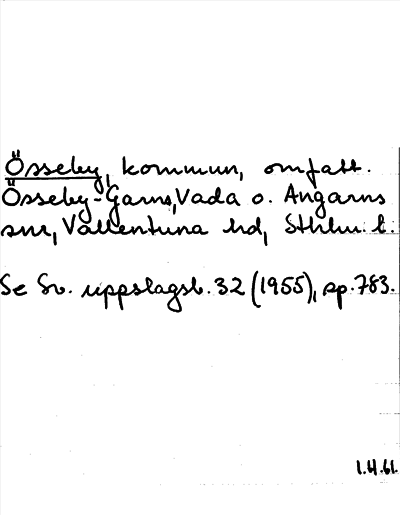 Össeby, kommun, omfatt.
Össeby-Garns, Vada o. Angarns
snr, Vallentuna hd, Sthlm l.
Se Sv. uppslagsb. 32 (1955), sp. 783.
1.4.61.